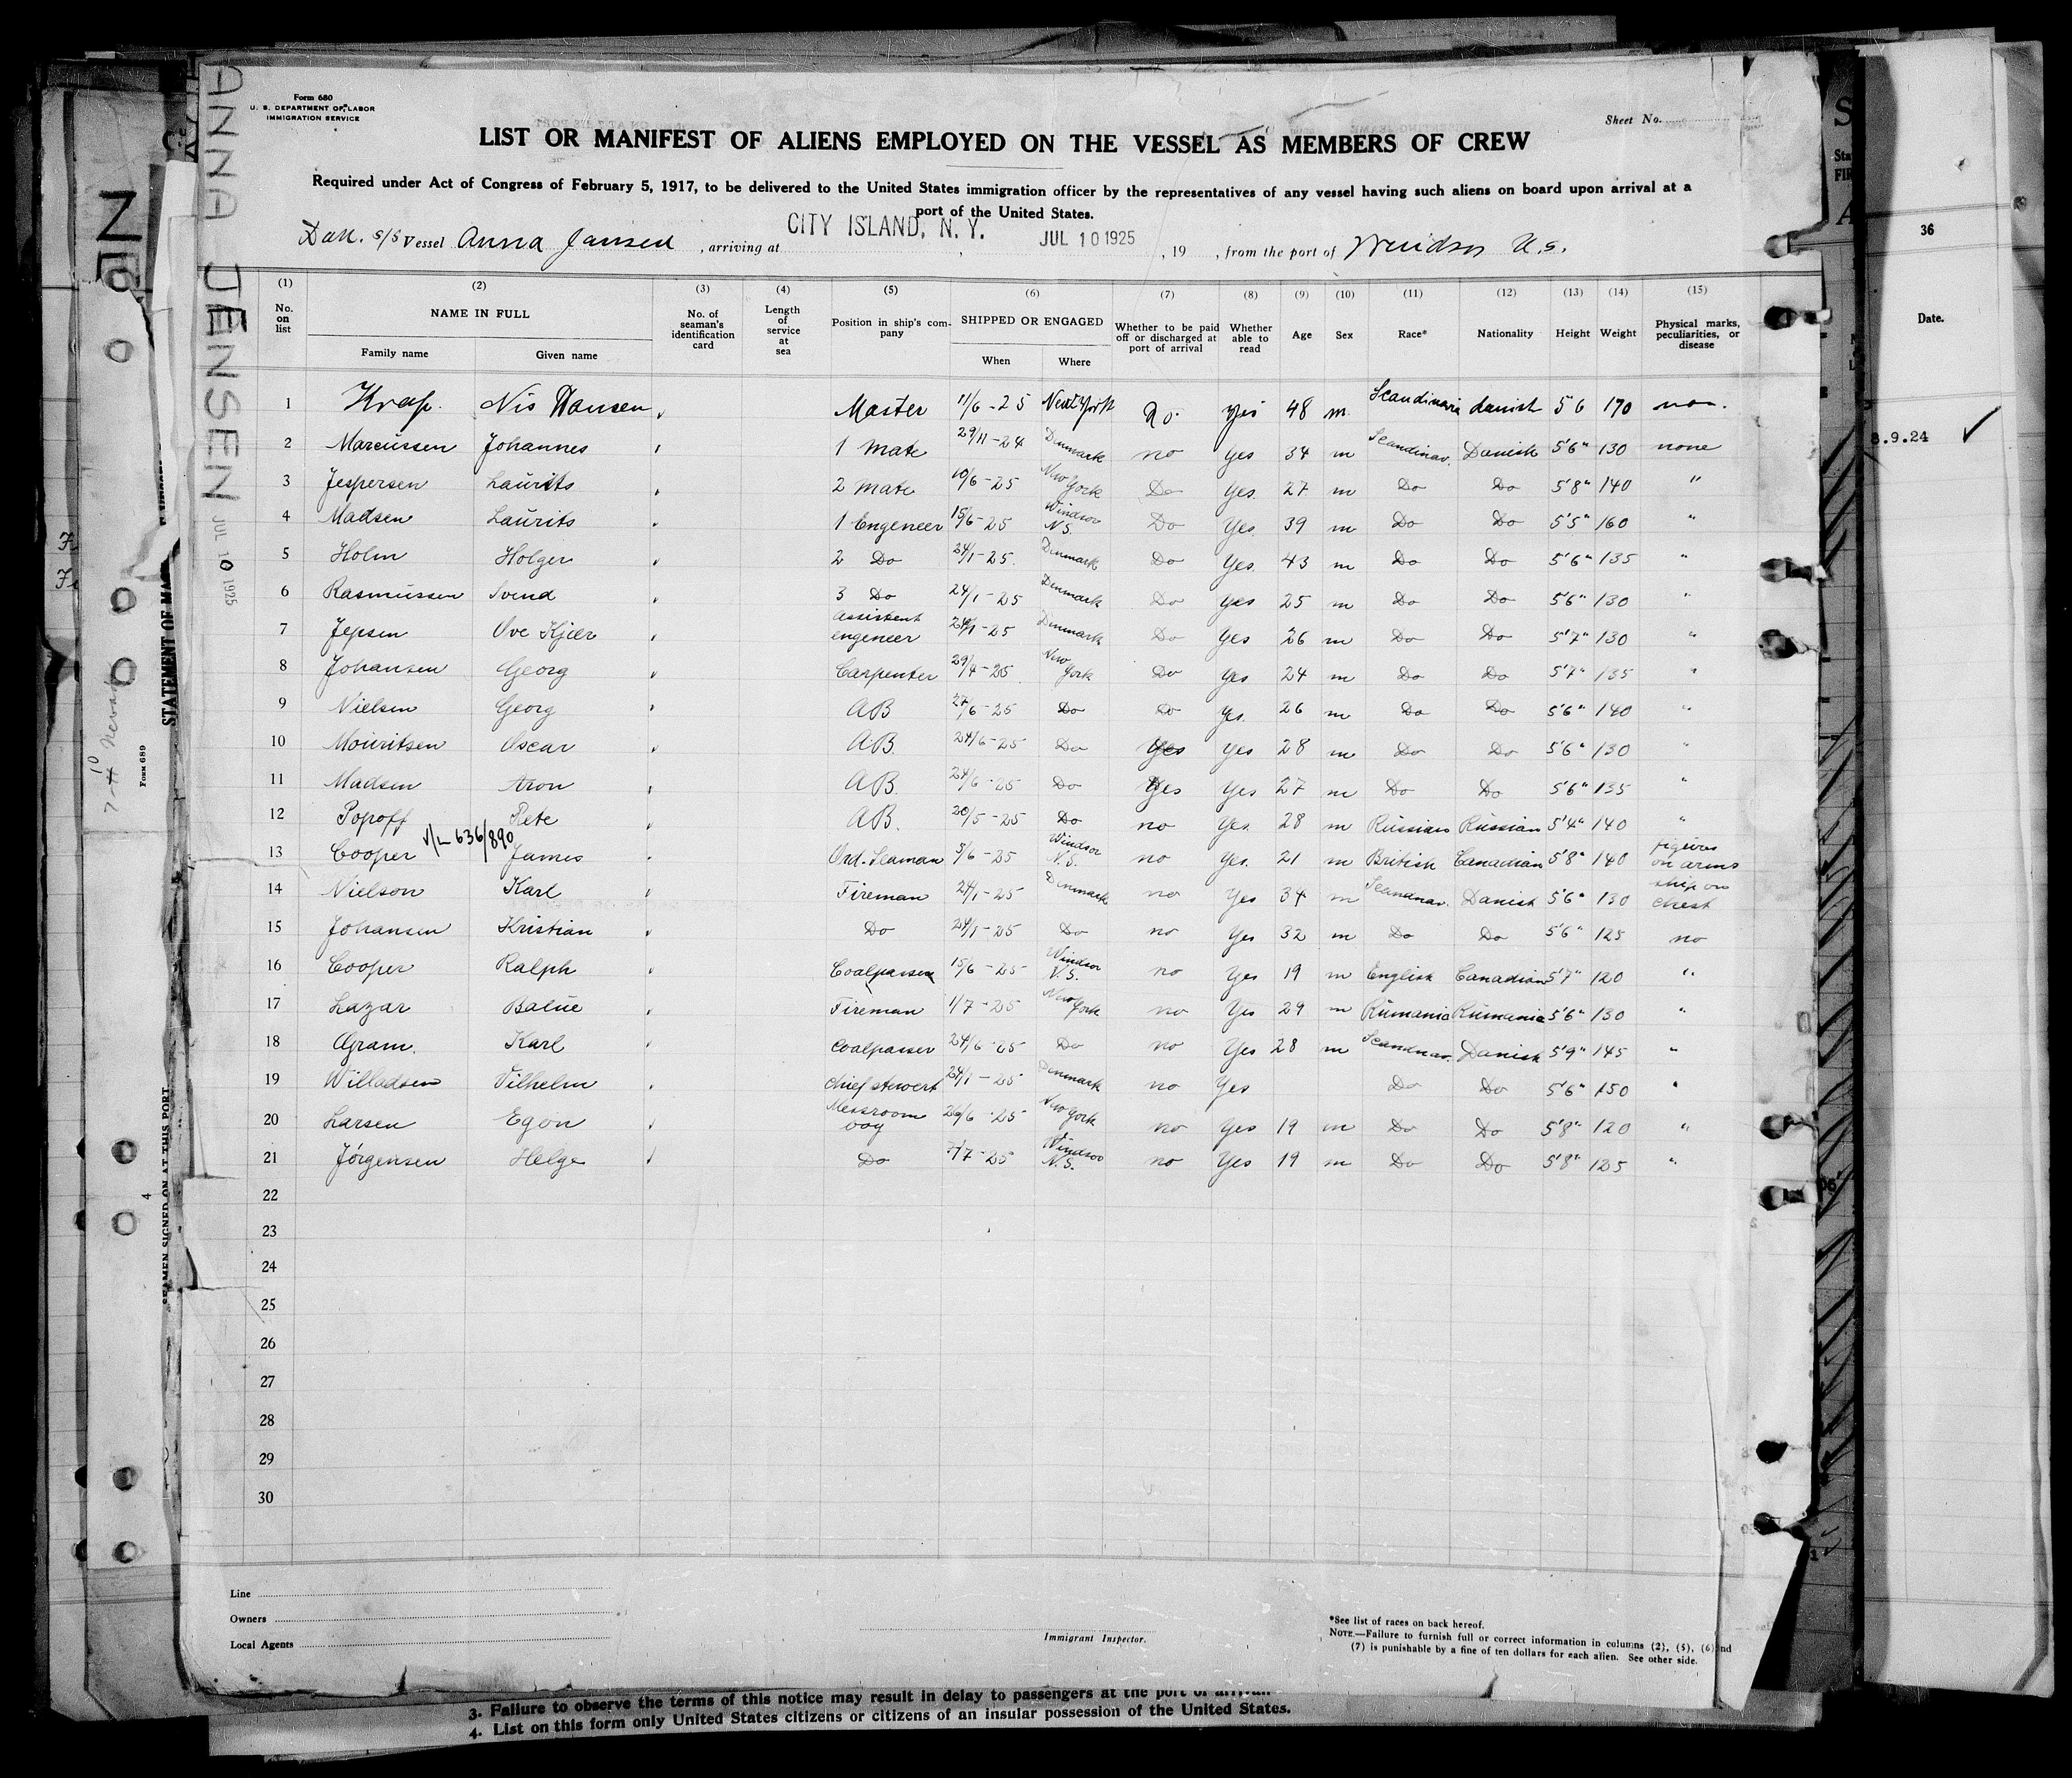 Form 680
U. S. DEPARTMENT OF LABOR
IMMIGRATION SERVICE
Sheet No.
LIST OR MANIFEST OF ALIENS EMPLOYED ON THE VESSEL AS MEMBERS OF CREW
Required under Act of Congress of February 5, 1917, to be delivered to the United States immigration officer by the representatives of any vessel having such aliens on board upon arrival at a
port of the United States.
Dan. S/S Vessel Anna Jensen, arriving at CITY ISLAND, N. Y. JUL 10 1925, 19 , from the port of Windsor N.S.
ANNA JENSEN JUL 10 1925
(1) (2) (3) (4) (5) (6) (7) (8) (9) (10) (11) (12) (13) (14) (15)
No. on list NAME IN FULL Family name Given name No. of seaman's identification card Length of service at sea Position in ship's company SHIPPED OR ENGAGED When Where Whether to be paid off or discharged at port of arrival Whether able to read Age Sex Race* Nationality Height Weight Physical marks, peculiarities, or disease
1 Krap. Nis Hansen Master 11/6-25 New York no. yes 48 m. Scandinavia danish 5 6 170 non.
2 Marcussen Johannes 1 mate 29/11-24 Denmark no Yes 34 m Scandinav. Danish 5'6" 130 none
3 Jespersen Laurits 2 mate 10/6-25 New York Do Yes. 27 m Do Do 5'8" 140 "
4 Madsen Laurits 1 Engeneer 15/6-25 Windsor N.S. Do Yes 39 m Do Do 5'5" 160 "
5 Holm Holger 2 Do 24/1-25. Denmark Do Yes. 43 m Do Do 5'6" 135 "
6 Rasmussen Svend 3 Do 24/1-25 Denmark Do yes 25 m Do Do 5'6" 130 "
7 Jepsen Ove Kjær assistent engeneer 24/1-25 Denmark Do Yes 26 m Do Do 5'7" 130 "
8 Johansen Georg Carpenter 29/4-25 New York Do Yes 24 m Do Do 5'7" 135 "
9 Nielsen Georg AB 27/6-25 Do Do Yes. 26 m Do Do 5'6" 140 "
10 Mouritsen Oscar AB. 24/6-25 Do Yes Yes 28 m Do Do 5'6" 130 "
11 Madsen Aron AB. 24/6-25 Do Yes Yes 27 m Do Do 5'6" 135 "
12 Popoff Pete AB. 20/5-25 Do no Yes. 28 m Russian Russian 5'4" 140 "
V/L 636/890
13 Cooper James Ord. Seaman 5/6-25 Windsor N.S. no Yes. 21 m British Canadian 5'8" 140 figures on arms
14 Nielson Karl Fireman 24/1-25 Denmark no Yes 34 m Scandnav. Danish 5'6" 130 ship on chest
15 Johansen Kristian Do 24/1-25 Do no Yes 32 m Do Do 5'6" 125 no
16 Cooper Ralph Coalpasser 15/6-25 Windsor N.S. no Yes 19 m English Canadian 5'7" 120 "
17 Lazar Balue Fireman 1/7-25 New York no Yes 29 m Rumania Rumania 5'6" 130 "
18 Gram. Karl Coalpasser 24/6-25 Do no Yes 28 m Scandnav. Danish 5'9" 145 "
19 Willadsen Vilhelm chief stewert 24/1-25 Denmark no Yes Do Do 5'6" 150 "
20 Larsen Egon Messroom boy 26/6-25 New York no Yes 19 m Do Do 5'8" 120 "
21 Jörgensen Helge Do 7/7-25 Windsor N.S. no Yes 19 m Do Do 5'8" 125 "
22
23
24
25
26
27
28
29
30
Line
Owners
Local Agents
Immigrant Inspector.
*See list of races on back hereof.
NOTE.—Failure to furnish full or correct information in columns (2), (5), (6) and
(7) is punishable by a fine of ten dollars for each alien. See other side.
3. Failure to observe the terms of this notice may result in delay to passengers at the port of arrival.
4. List on this form only United States citizens or citizens of an insular possession of the United States.
STATEMENT OF
FORM 689
4
SEAMEN SIGNED ON AT THIS PORT
36
Date.
8.9.24